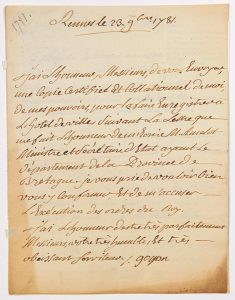 1781.
Rennes le 23. 9bre 1781.
J'ai l'honneur, Messieurs, de vous Envoyer,
une copie Certifiée et Collationnée de
de mes pouvoirs, pour les faire Enregistrer a
l'hotel de ville suivant la Lettre que
me fait l'honneur de m'ecrire M.
Ministre et Secrétaire d'Etat ayant le
Département de la Province de
Bretagne, je vous prie de vouloir bien
vous y conformer Et de m'accuser
L'Execution des ordres du Roy.
J'ai L'honneur d'etre tres parfaitement
Messieurs, votre tres humble, Et tres
obeissant serviteur, goyon